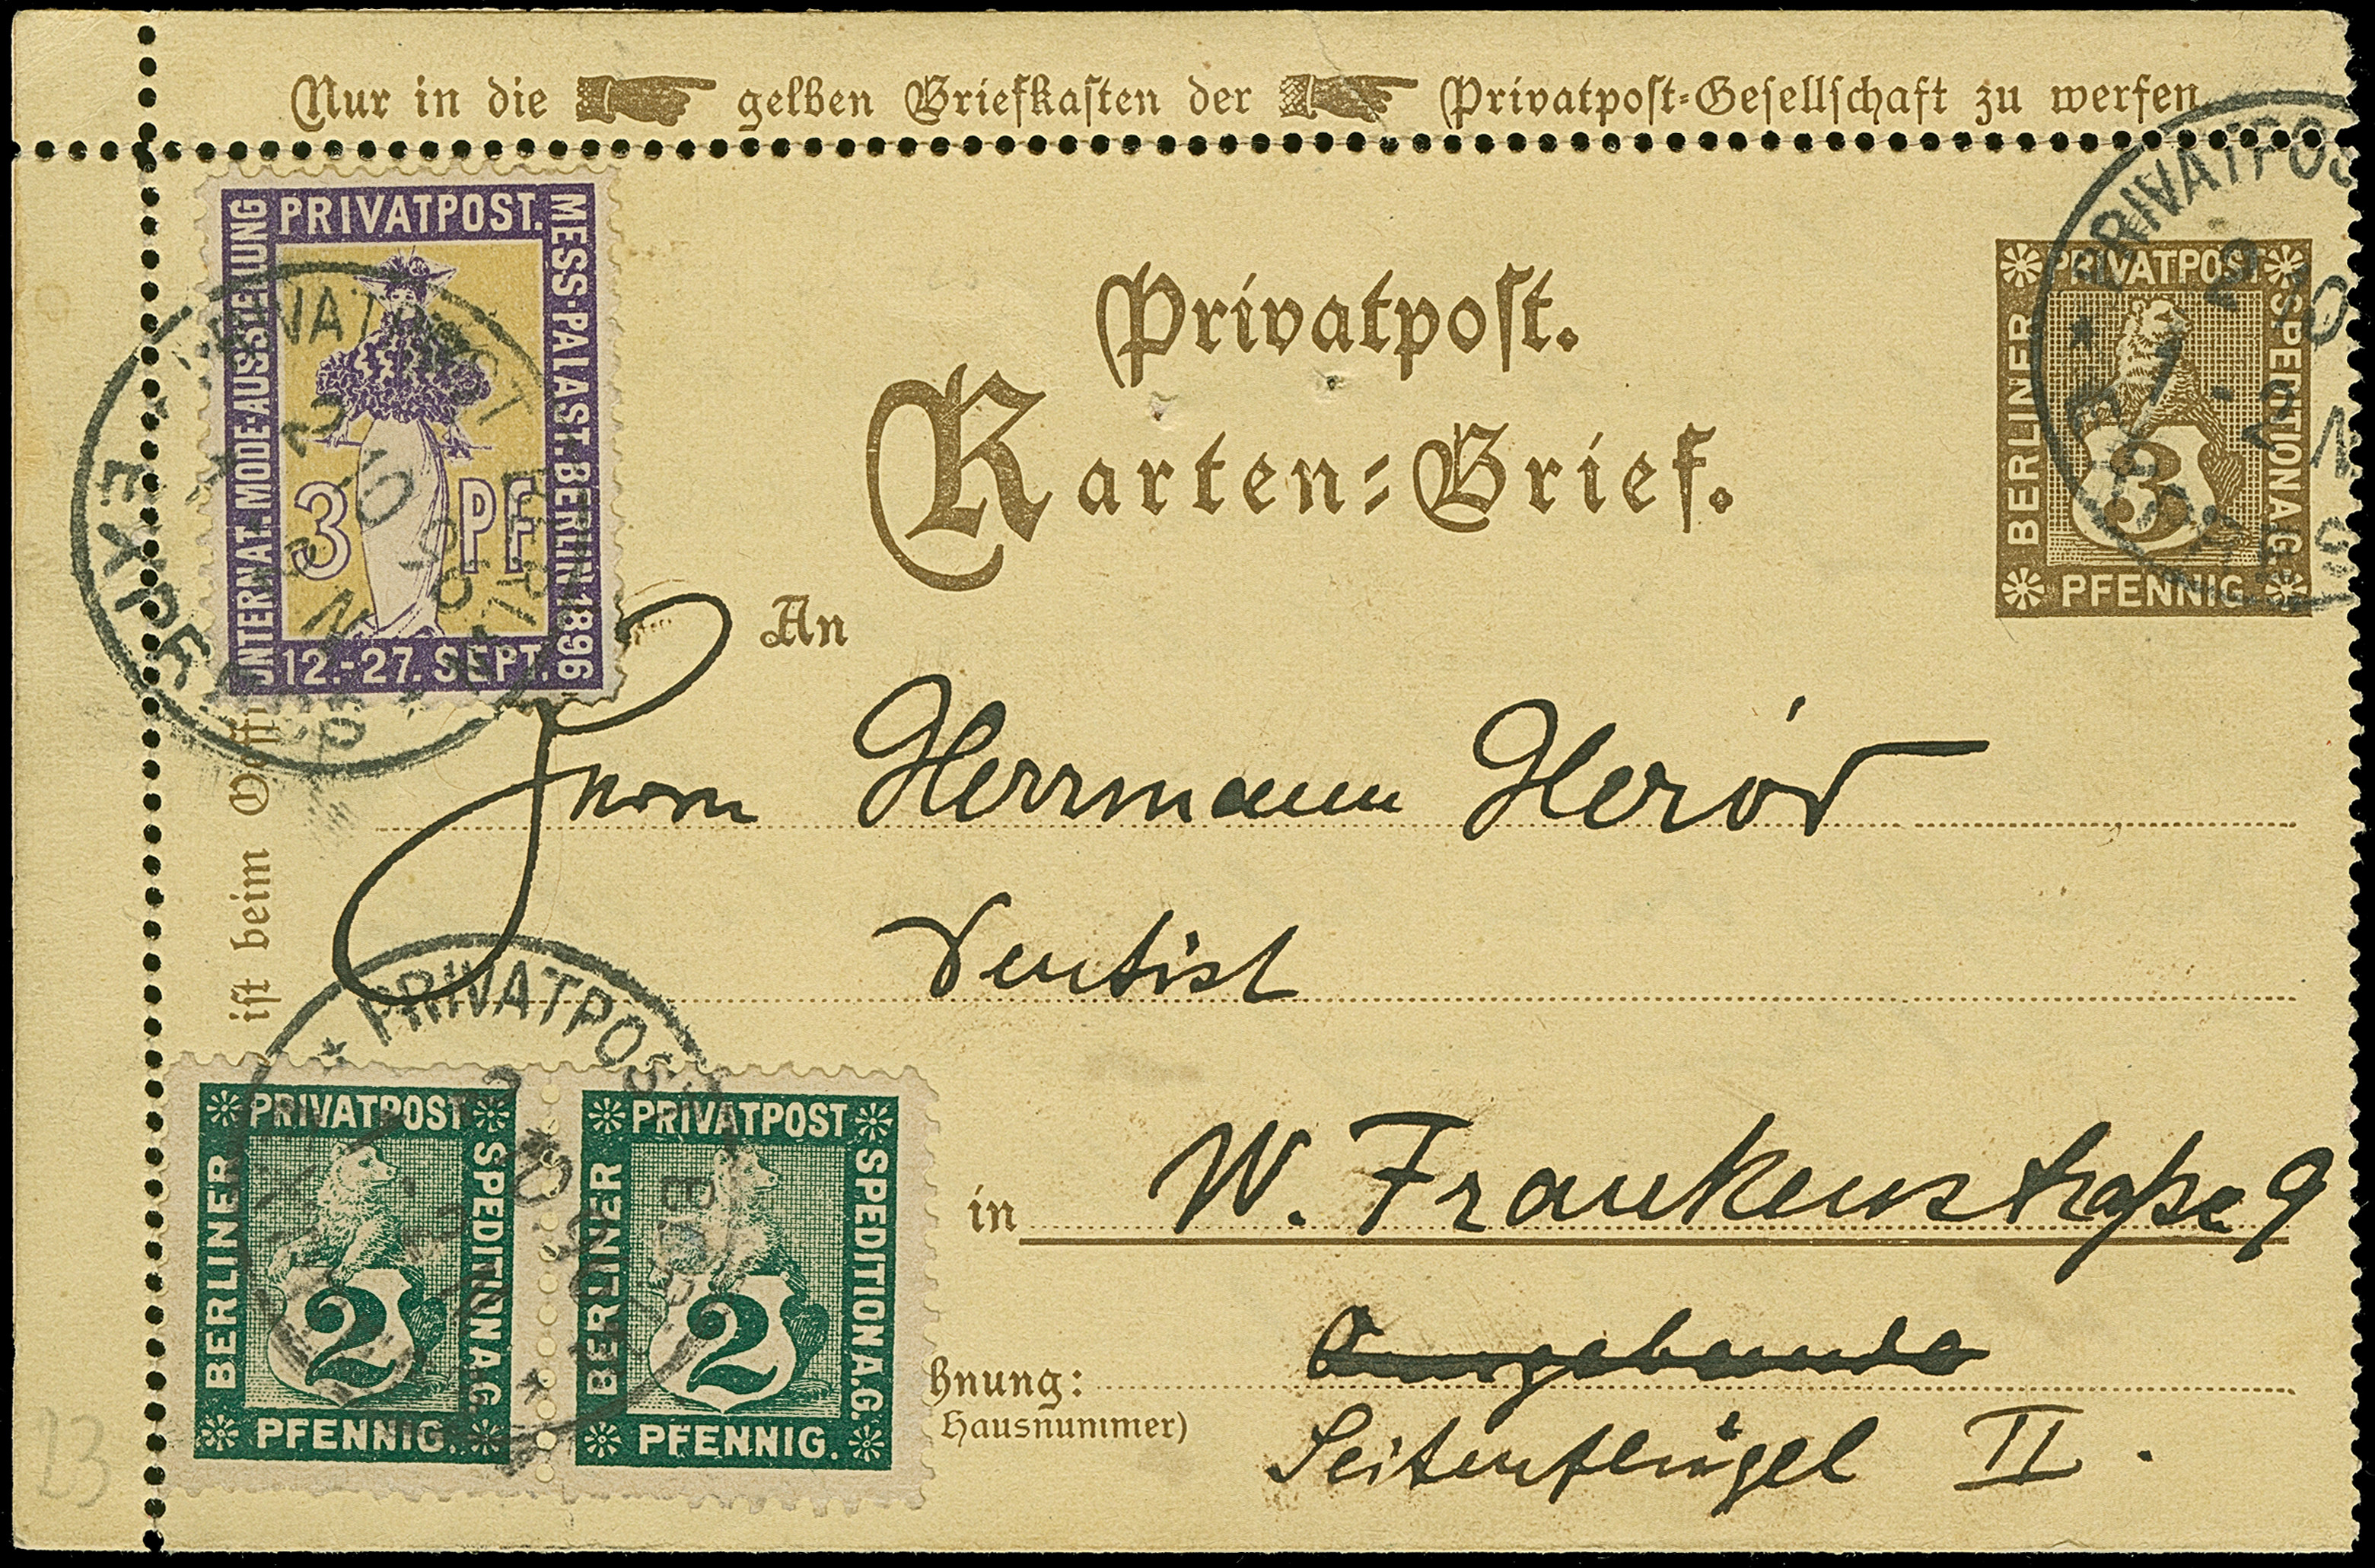 Nur in die gelben Briefkasten der Privatpost-Gesellschaft zu werfen.
PRIVATPOST.
MESS-PALAST. BERLIN 1896
INTERNAT. MODE AUSSTELLUNG
3 PF
12.-27. SEPT.
PRIVATPOST
EXPRESS
Privatpost.
Karten-Brief.
PRIVATPOST
BERLINER
SPEDITION A.G.
3
PFENNIG.
PRIVATPOST
An
Herrn Herrmann
Dentist
ist beim
PRIVATPOST
in W. Frankenstraße 9
hnung:
Hausnummer)
Seitenflügel II.
PRIVATPOST
BERLINER
SPEDITION A.G.
2
PFENNIG.
PRIVATPOST
BERLINER
SPEDITION A.G.
2
PFENNIG.